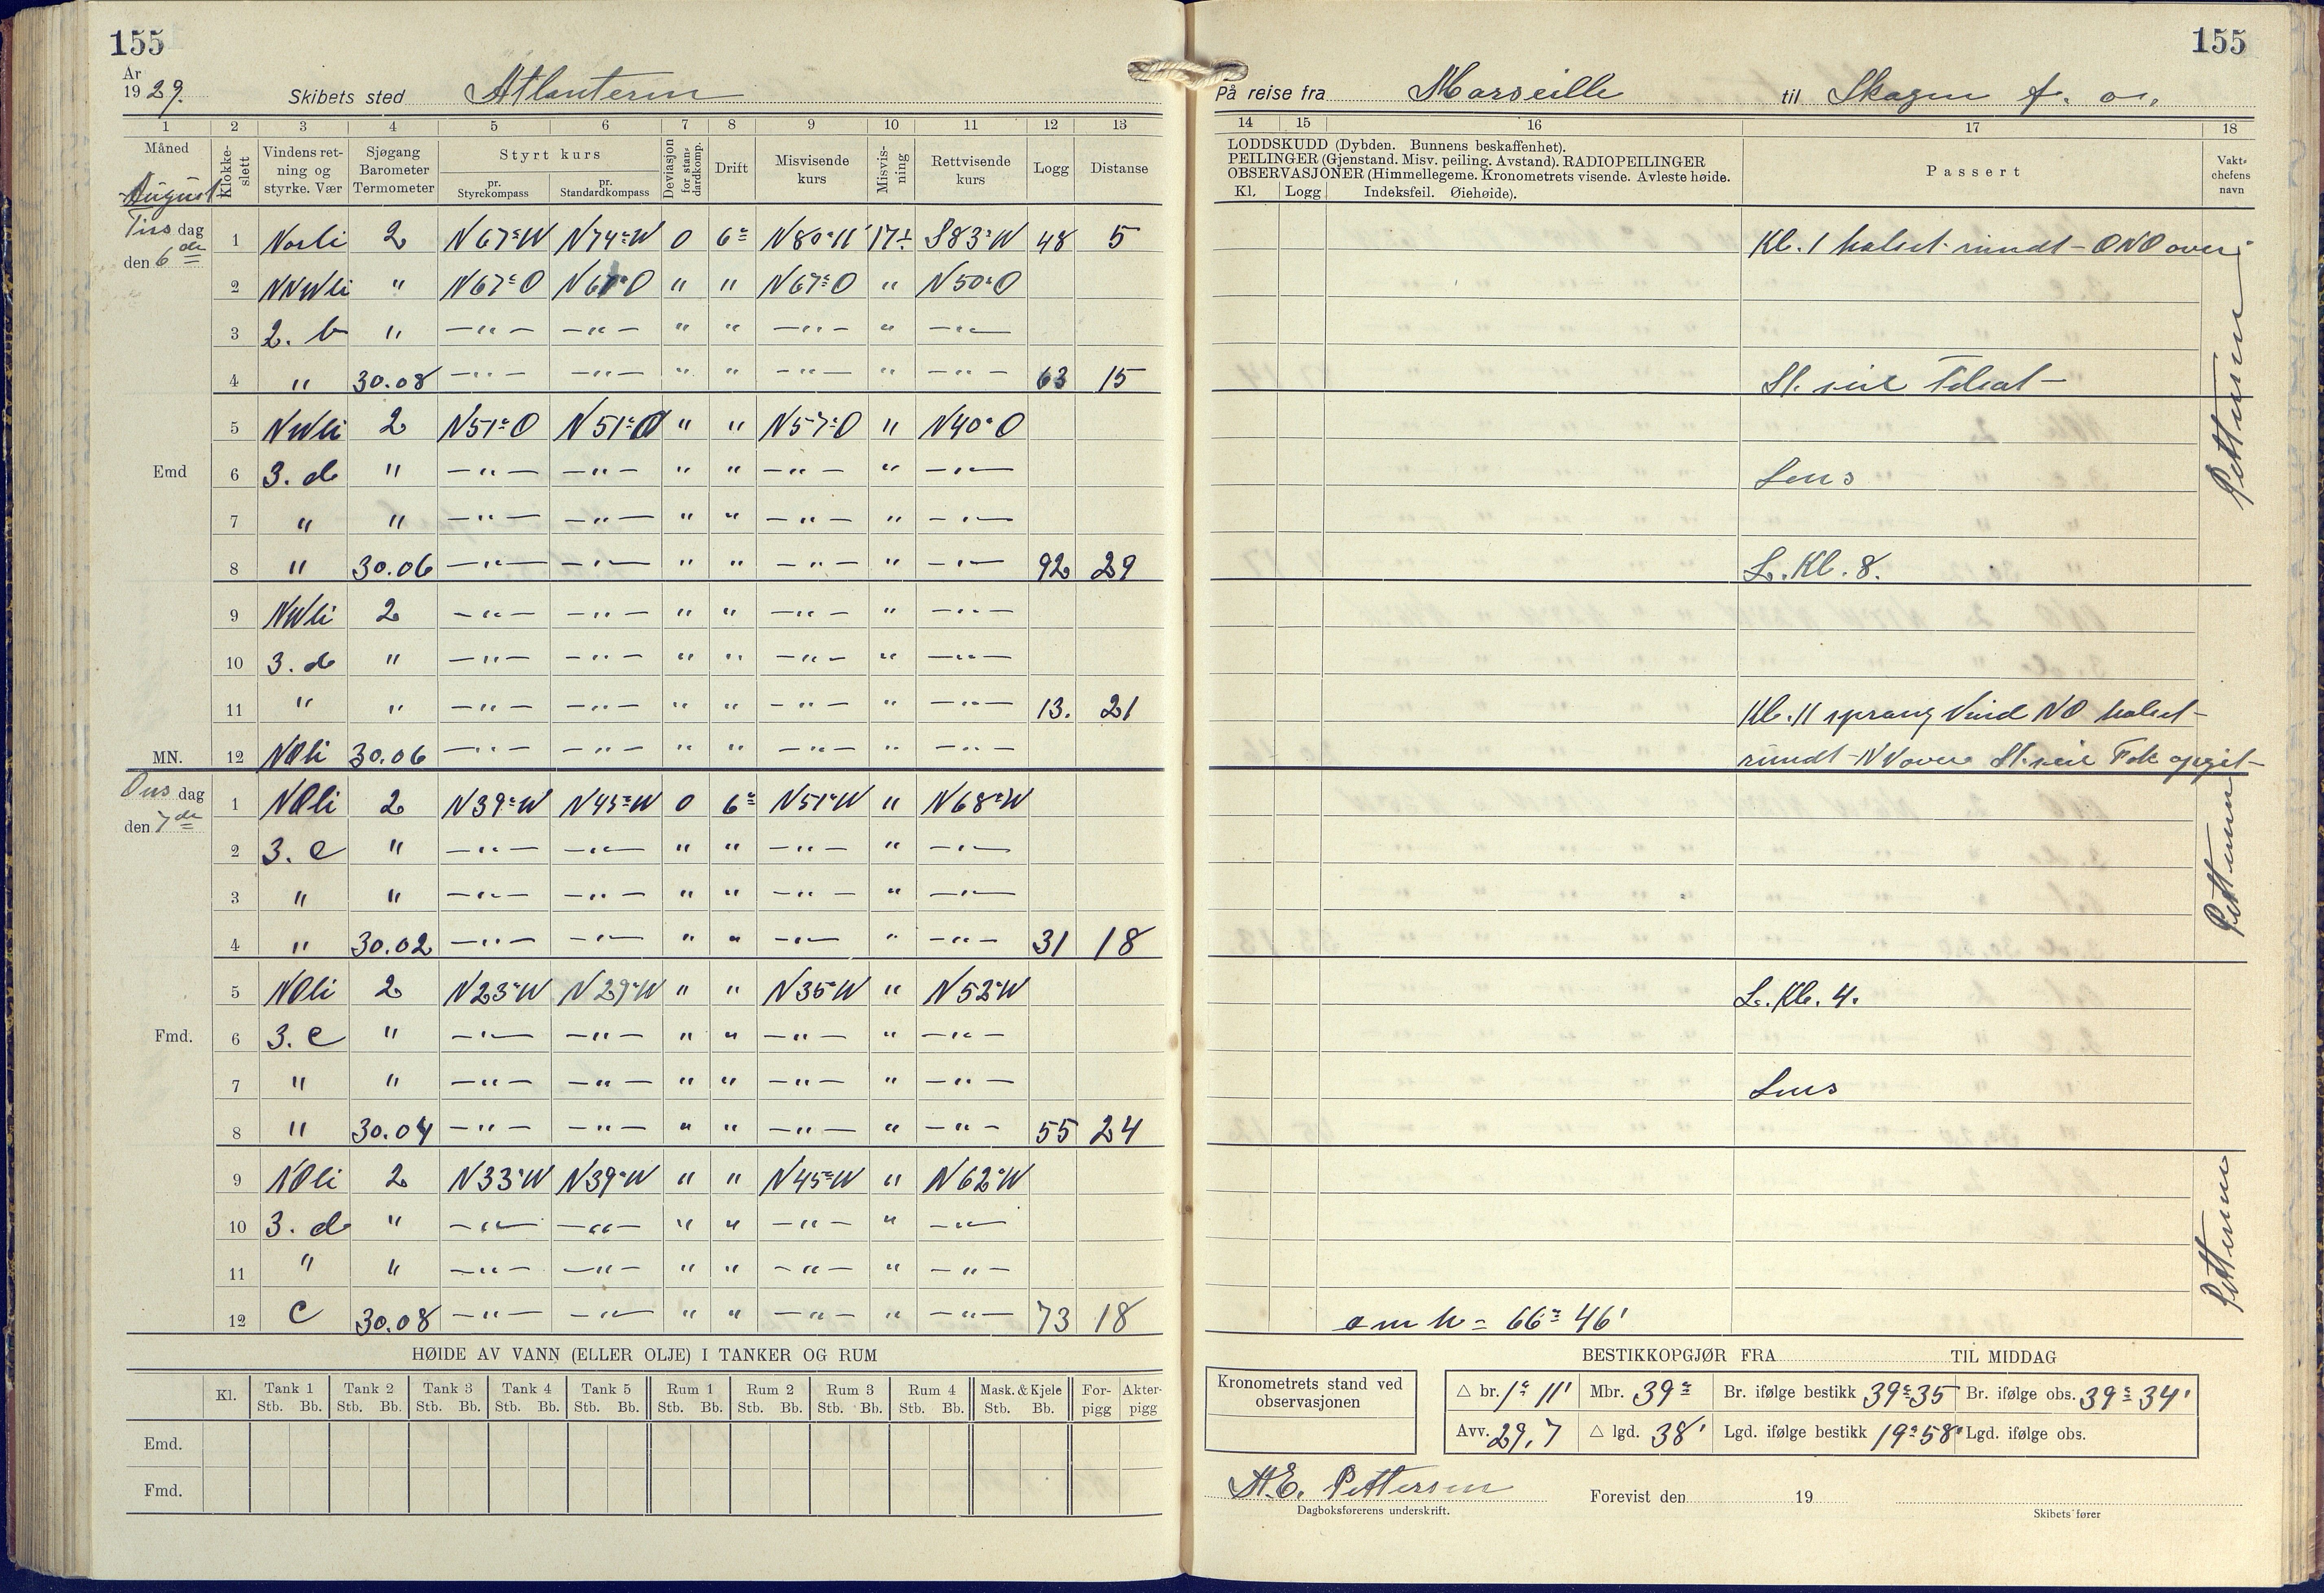 155
155
År
19 29.
Skibets sted Atlanteren
På reise fra Marseille til Skagen f. o.
1 2 3 4 5 6 7 8 9 10 11 12 13
14 15 16 17 18
Måned
August
Klokkeslett
Vindens retning og styrke. Vær
Sjøgang Barometer Termometer
Styrt kurs
pr. Styrekompass
pr. Standardkompass
Deviasjon for standardkomp.
Drift
Misvisende kurs
Misvisning
Rettvisende kurs
Logg
Distanse
LODDSKUDD (Dybden. Bunnens beskaffenhet).
PEILINGER (Gjenstand. Misv. peiling. Avstand). RADIOPEILINGER
OBSERVASJONER (Himmellegeme. Kronometrets visende. Avleste høide.
Kl. Logg Indeksfeil. Øiehøide).
Passert
Vaktchefens navn
Tirsdag
den 6de
1 Norli 2 N67°W N74°W 0 6° N80°W 17÷ S83°W 48 5 Kl. 1 halset rundt – ONO over
2 NNWli " N67°O N67°O " " N67°O " N50°O
3 2. b " –"– –"– " " –"– " –"–
4 " 30.08 –"– –"– " " –"– " –"– 63 15 St. seil
5 NWli 2 N51°O N51°O " " N57°O " N40°O
Emd 6 3. d " –"– –"– " " –"– " –"– Lens
7 " " –"– –"– " " –"– " –"–
8 " 30.06 –"– –"– " " –"– " –"– 92 29 L. Kl. 8.
9 NWli 2 –"– –"– " " –"– " –"–
10 3. d " –"– –"– " " –"– " –"–
11 " " –"– –"– " " –"– " –"– 13. 21 Kl. 11 sprang Vind NO halset
MN. 12 NOli 30.06 –"– –"– " " –"– " –"– rundt – NV over St. seil Fok opgit
Pettersen
Onsdag
den 7de
1 NOli 2 N39°W N45°W 0 6° N51°W " N68°W
2 3. c " –"– –"– " " –"– " –"–
3 " " –"– –"– " " –"– " –"–
4 " 30.02 –"– –"– " " –"– " –"– 31 18
Pettersen
5 NOli 2 N23°W N29°W " " N35°W " N52°W L. Kl. 4.
Fmd. 6 3. c " –"– –"– " " –"– " –"–
7 " " –"– –"– " " –"– " –"– Lens
8 " 30.04 –"– –"– " " –"– " –"– 55 24
9 NOli 2 N33°W N39°W " " N45°W " N62°W
10 3. d " –"– –"– " " –"– " –"–
11 " " –"– –"– " " –"– " –"–
12 c 30.08 –"– –"– " " –"– " –"– 73 18 o m h = 66° 46'
Pettersen
HØIDE AV VANN (ELLER OLJE) I TANKER OG RUM
Kl. Tank 1 Tank 2 Tank 3 Tank 4 Tank 5 Rum 1 Rum 2 Rum 3 Rum 4 Mask. & Kjele For- Akter-
Stb. Bb. Stb. Bb. Stb. Bb. Stb. Bb. Stb. Bb. Stb. Bb. Stb. Bb. Stb. Bb. Stb. Bb. Stb. Bb. pigg pigg
Emd.
Fmd.
BESTIKKOPGJØR FRA TIL MIDDAG
Kronometrets stand ved
observasjonen
△ br. 1° 11' Mbr. 39° Br. ifølge bestikk 39°35 Br. ifølge obs. 39° 34'
Avv. 29,7 △ lgd. 38' Lgd. ifølge bestikk 19°58' Lgd. ifølge obs.
H.E. Pettersen
Dagboksførerens underskrift.
Forevist den 19
Skibets fører